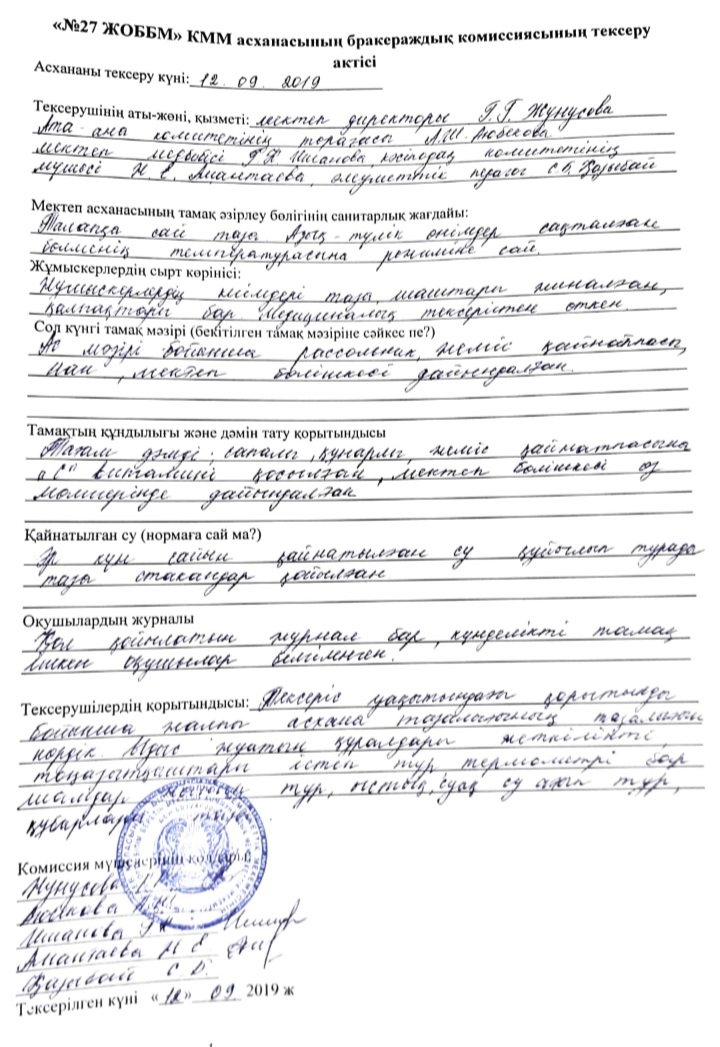 «№27 ЖОББМ» КММ асханасының бракераждық комиссиясының тексеру
актісі
Асхананы тексеру күні: 12. 09. 2019
Тексерушінің аты-жөні, қызметі: мектеп директоры Г.Г. Жунусова
Ата-ана комитетінің төрағасы А.Ш. Аюбекова
мектеп медбибісі Г.К. Ишанова, кәсіподақ комитетінің
мүшесі Н.Е. Амантаева, әлуметтік педагог С.Б. Қазыбай
Мектеп асханасының тамақ әзірлеу бөлігінің санитарлық жағдайы:
Талапқа сай таза Азық-түлік өнімдер сақталған
бөлменің температурасына режиміне сай.
Жұмыскерлердің сырт көрінісі:
Жұмыскерлердің киімдері таза, шаштары жиналған,
қалпақтары бар. Медициналық тексерістен өткен.
Сол күнгі тамақ мәзірі (бекітілген тамақ мәзіріне сәйкес пе?)
Ас мәзірі бойынша рассольник, жеміс қайнатпасы,
нан, мектеп бөлішкесі дайындалған.
Тамақтың құндылығы және дәмін тату қорытындысы
Тағам дәмді, сапалы, құнарлы, жеміс қайнатпасына
"С" витамині қосылған, мектеп бөлішкесі өз
мөлшерінде дайындалған
Қайнатылған су (нормаға сай ма?)
Әр күн сайын қайнатылған су құйылып тұрады
таза стакандар қойылған
Оқушылардың журналы
Қол қойылатын журнал бар, күнделікті тамақ
ішкен оқушылар белгіленген.
Тексерушілердің қорытындысы: Тексеріс уақытындағы қорытынды
бойынша жалпы асхана тазалығының тазалығын
көрдік. Ыдыс жуатын құралдары жеткілікті,
тоңазытқыштары істеп тұр, термометрі бар
шамдар тұр, ыстық, суық су ағып тұр,
құбырлары
Комиссия мүшелерінің қолдары:
Жунусова Г.Г.
Аюбекова А.Ш.
Ишанова Г.К.
Амантаева Н.Е.
Қазыбай С.Б.
Тексерілген күні «12» 09 2019 ж